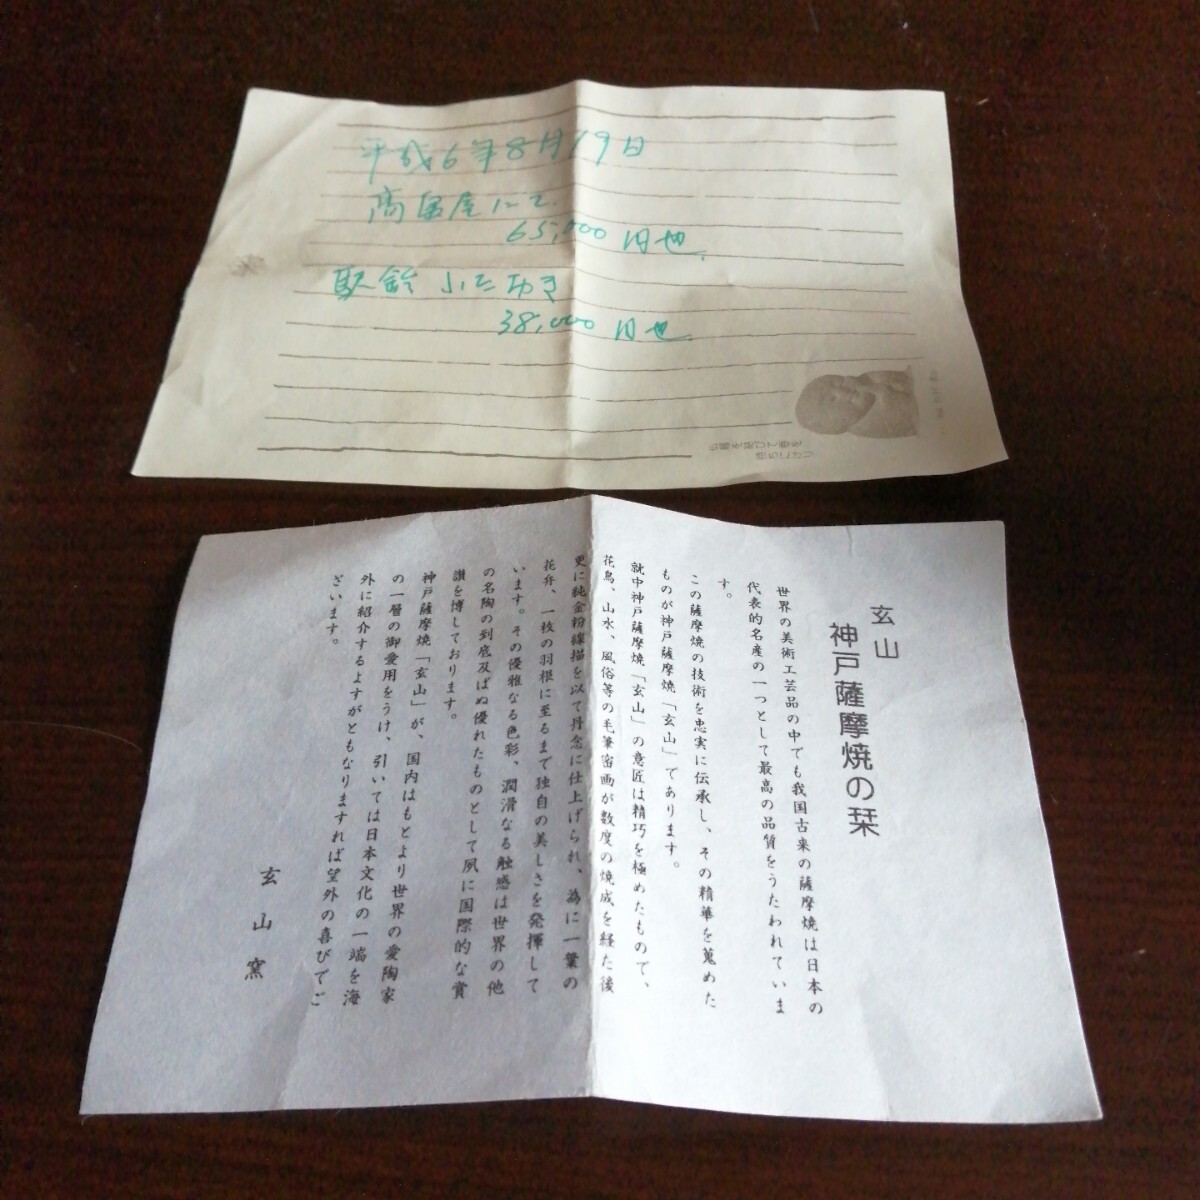 平成6年8月19日
高島屋にて
65,000円也.
駅鈴 ふたおき
38,000円也.
玄山
神戸薩摩焼の栞
世界の美術工芸品の中でも我国古来の薩摩焼は日本の
代表的名産の一つとして最高の品質をうたわれていま
す。
この薩摩焼の技術を忠実に伝承し、その精華を蒐めた
ものが神戸薩摩焼「玄山」であります。
就中神戸薩摩焼「玄山」の意匠は精巧を極めたもので、
花鳥、山水、風俗等の毛筆密画が数度の焼成を経た後
更に純金粉線描を以て丹念に仕上げられ、為に一葉の
花弁、一枚の羽根に至るまで独自の美しさを発揮して
います。その優雅なる色彩、潤滑なる触感は世界の他
の名陶の到底及ばぬ優れたものとして夙に国際的な賞
讃を博しております。
神戸薩摩焼「玄山」が、国内はもとより世界の愛陶家
の一層の御愛用をうけ、引いては日本文化の一端を海
外に紹介するよすがともなりますれば望外の喜びでご
ざいます。
玄山窯